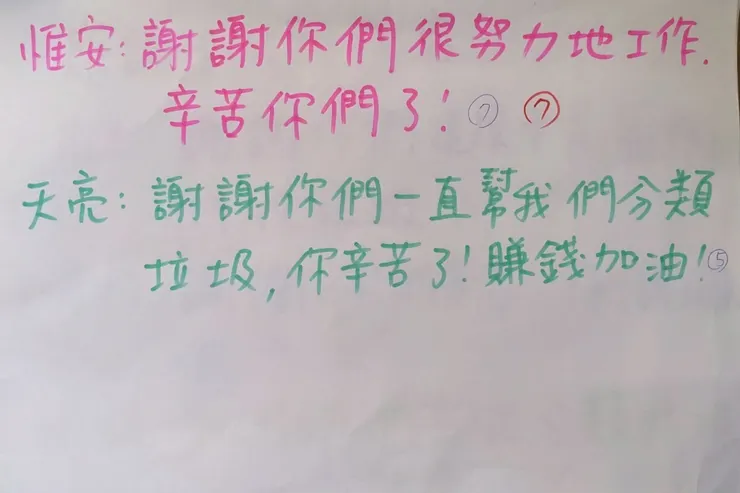 惟安：謝謝你們很努力地工作.
辛苦你們了！⑦ ⑦
天亮：謝謝你們一直幫我們分類
垃圾,你辛苦了！賺錢加油！⑤